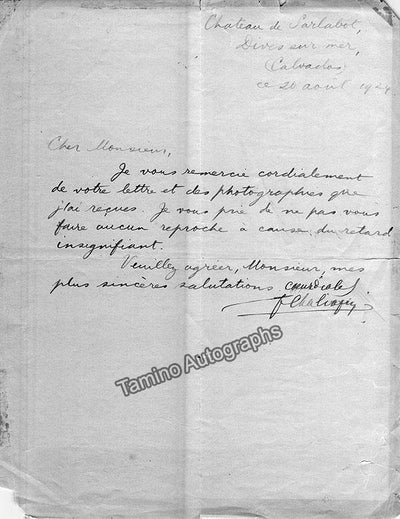 Chateau de Sarlabot,
Dives sur mer,
(Calvados)
ce 20 août 1924
Cher Monsieur,
Je vous remercie cordialement
de votre lettre et des photographies que
j'ai reçues. Je vous prie de ne pas vous
faire aucun reproche à cause du retard
insignifiant.
Veuillez agréer, Monsieur, mes
plus sincères salutations cordiales
F Chaliapin
Tamino Autographs